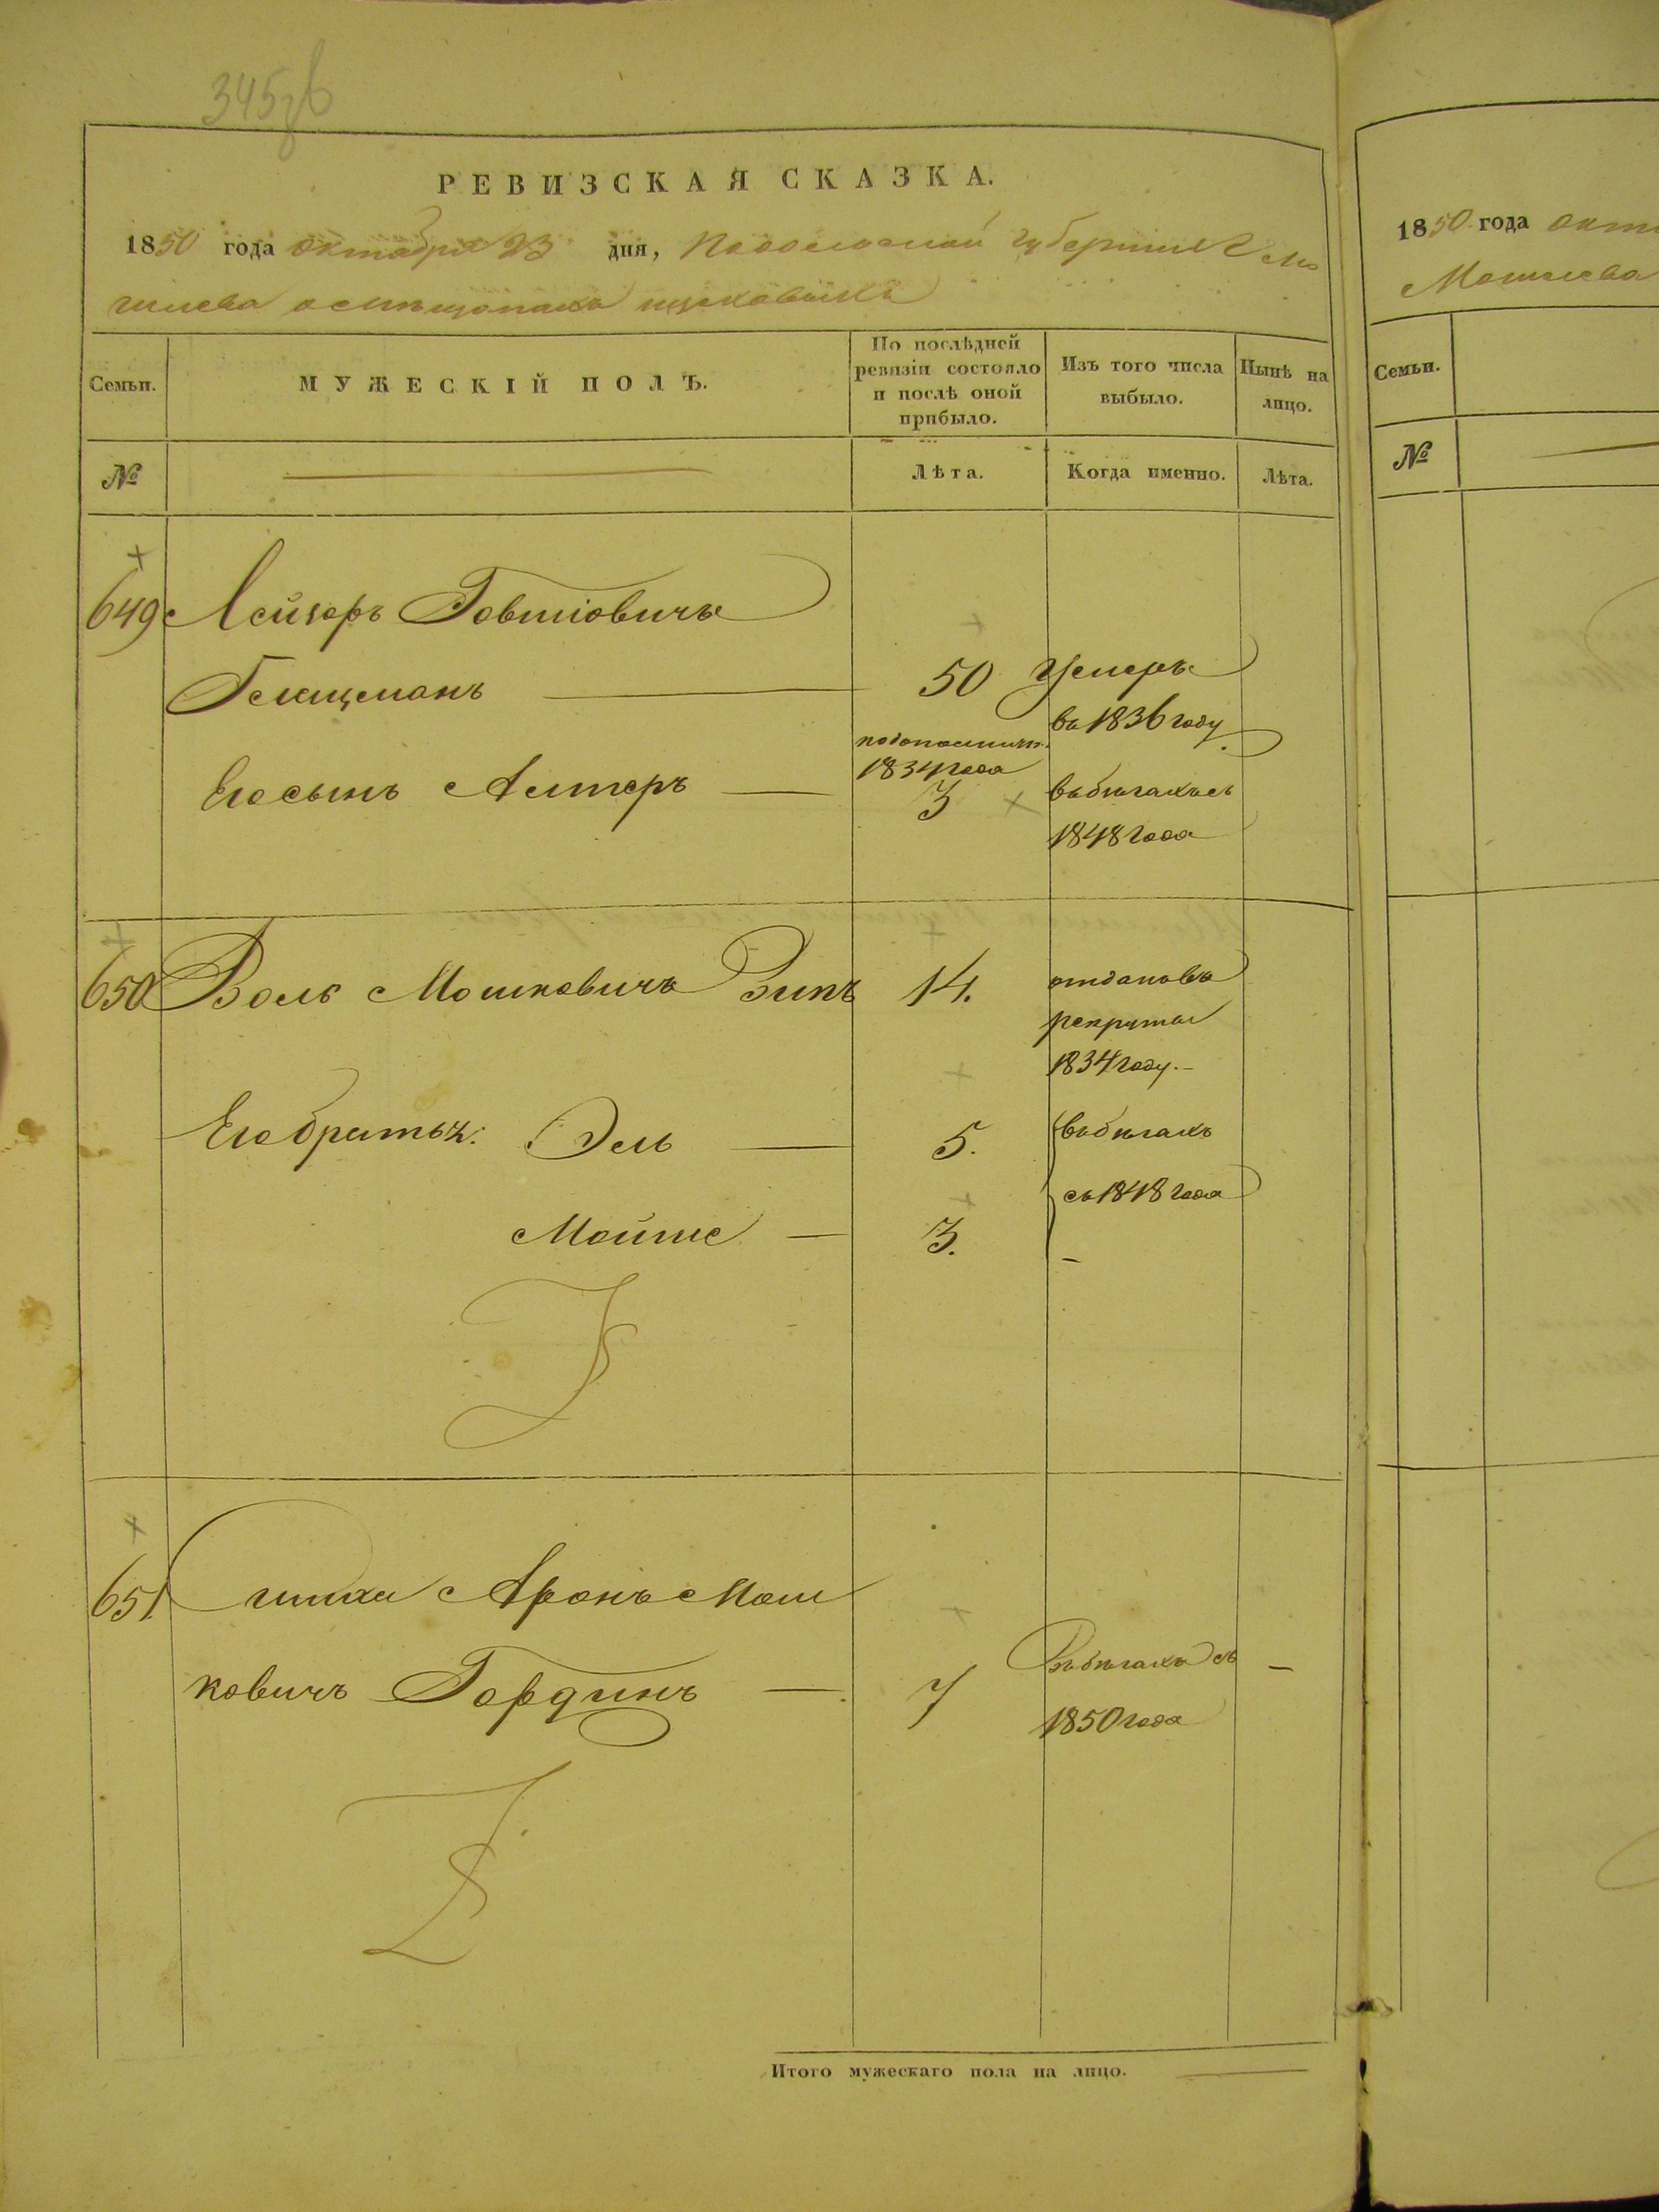 345об
РЕВИЗСКАЯ СКАЗКА.
1850 года октября 23 дня, Подольской губернии г Мо
гилева о мѣщанахъ цеховыхъ
Семьи.
МУЖЕСКІЙ ПОЛЪ.
По послѣдней ревизіи состояло и послѣ оной прибыло.
Изъ того числа выбыло.
Нынѣ на лицо.
№
Лѣта.
Когда именно.
Лѣта.
649 Лейзеръ Говшіовичъ
Гелицманъ 50 Умеръ
въ 1836 году
1834 года
Его сынъ Алтеръ 3 въ бѣгахъ съ
1848 года
650 Волѣ Мошковичъ Зинъ 14. отданъ въ
рекруты
1834 году.
Его братья: Эль 5. въ бѣгахъ
съ 1848 года
Мойше 3.
651 Аронъ Мош
ковичъ Гординъ 7 Въ бѣгахъ съ
1850 года
Итого мужескаго пола на лицо.
1850 года окт
Могилева
Семьи.
№